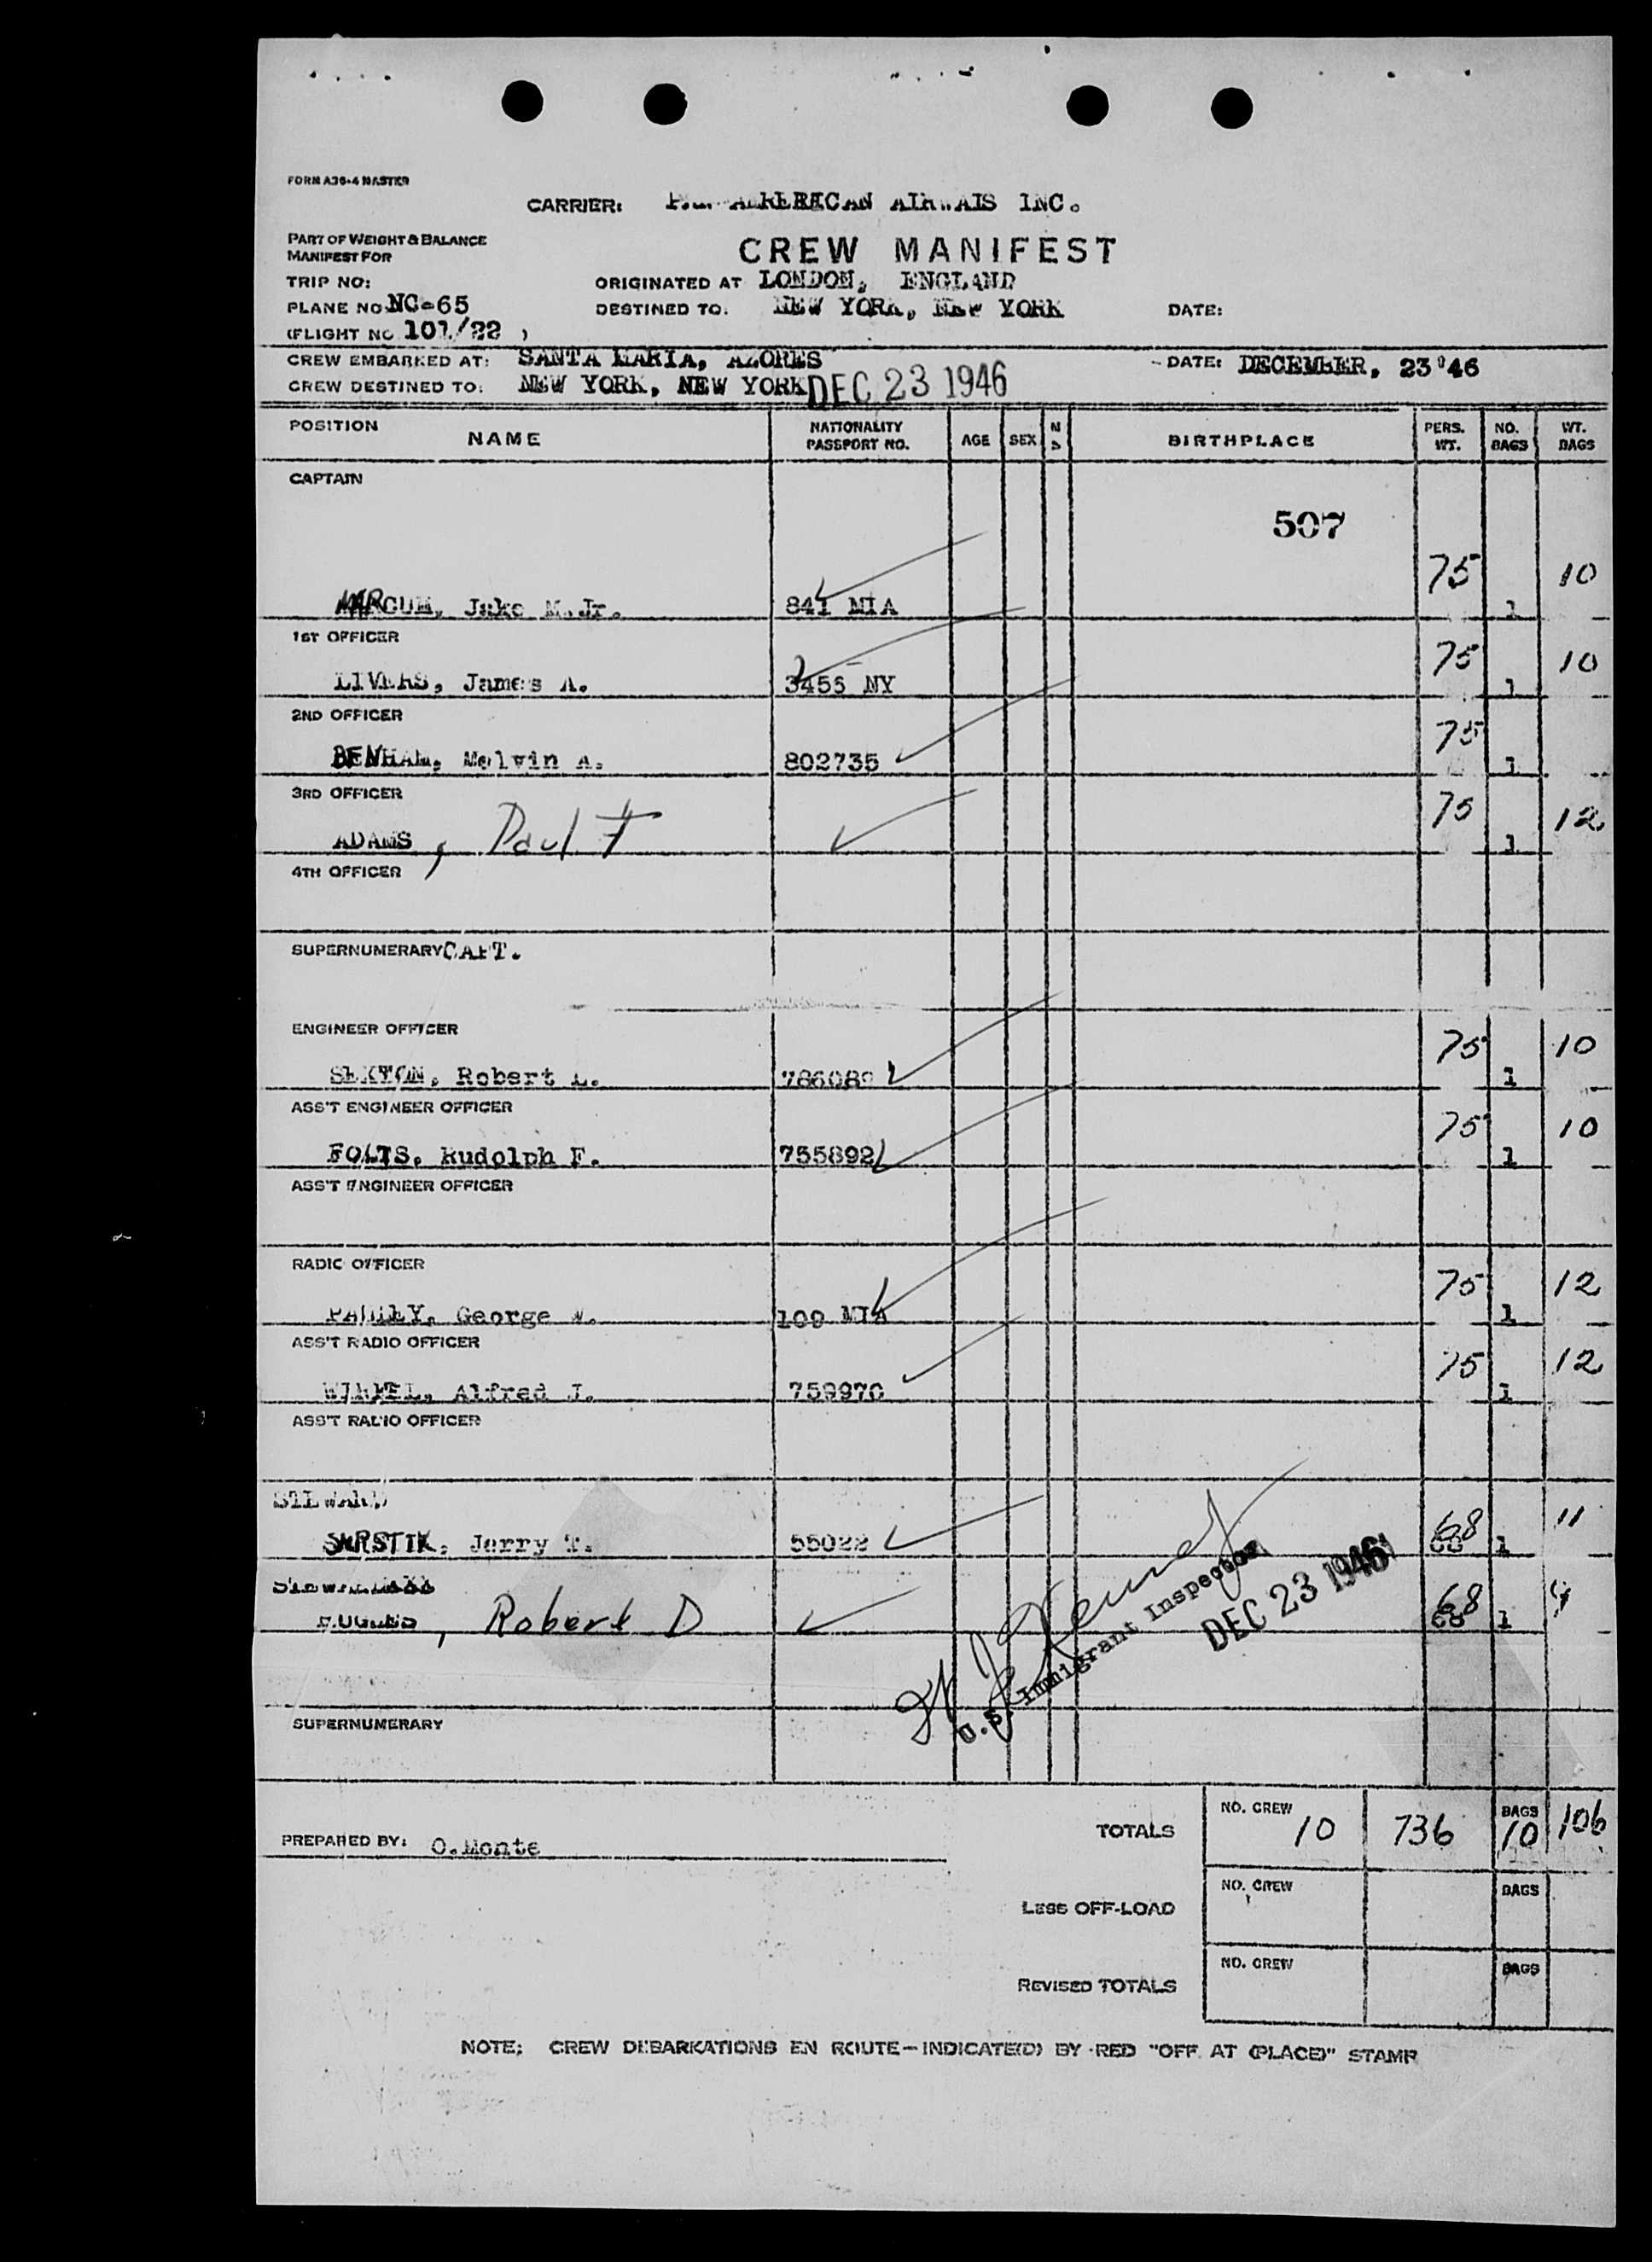 FORM A36-4 MASTER
CARRIER: AIRWAIS INC.
PART OF WEIGHT & BALANCE
MANIFEST FOR
CREW MANIFEST
TRIP NO: ORIGINATED AT LONDON, ENGLAND
PLANE NO NC-65 DESTINED TO: NEW YORK, NEW YORK DATE:
(FLIGHT NO 101/22 )
CREW EMBARKED AT: SANTA MARIA, AZORES DATE: DECEMBER, 23'46
CREW DESTINED TO: NEW YORK, NEW YORK DEC 23 1946
POSITION NAME NATIONALITY PASSPORT NO. AGE SEX BIRTHPLACE PERS. WT. NO. BAGS WT. BAGS
CAPTAIN
507
MARCUM, Jake M.Jr. 841 MIA 75 1 10
1ST OFFICER
LIVERS, James A. 3455 NY 75 1 10
2ND OFFICER
BENHAM, Melvin A. 802735 75 1
3RD OFFICER
ADAMS, Paul F 75 1 12
4TH OFFICER
SUPERNUMERARY CAPT.
ENGINEER OFFICER
SEXTON, Robert L. 786089 75 1 10
ASS'T ENGINEER OFFICER
FOLTS, Rudolph F. 755892 75 1 10
ASS'T ENGINEER OFFICER
RADIO OFFICER
George W. 109 MIA 75 1 12
ASS'T RADIO OFFICER
Alfred J. 759970 75 1 12
ASS'T RADIO OFFICER
STEWARD
Jerry T. 55022 68 1 11
Robert D 68 1 9
U.S. Immigrant Inspector
DEC 23 1946
SUPERNUMERARY
PREPARED BY: O.Monte
TOTALS NO. CREW 10 736 BAGS 10 106
LESS OFF-LOAD NO. CREW BAGS
REVISED TOTALS NO. CREW BAGS
NOTE: CREW DEBARKATIONS EN ROUTE-INDICATE(D) BY RED "OFF AT (PLACE)" STAMP